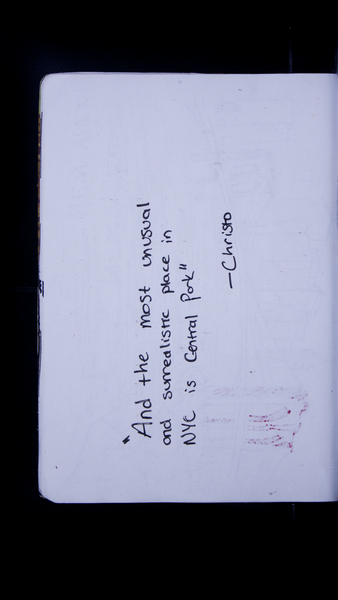 "And the most unusual
and surrealistic place in
NYC is Central Park"
—Christo